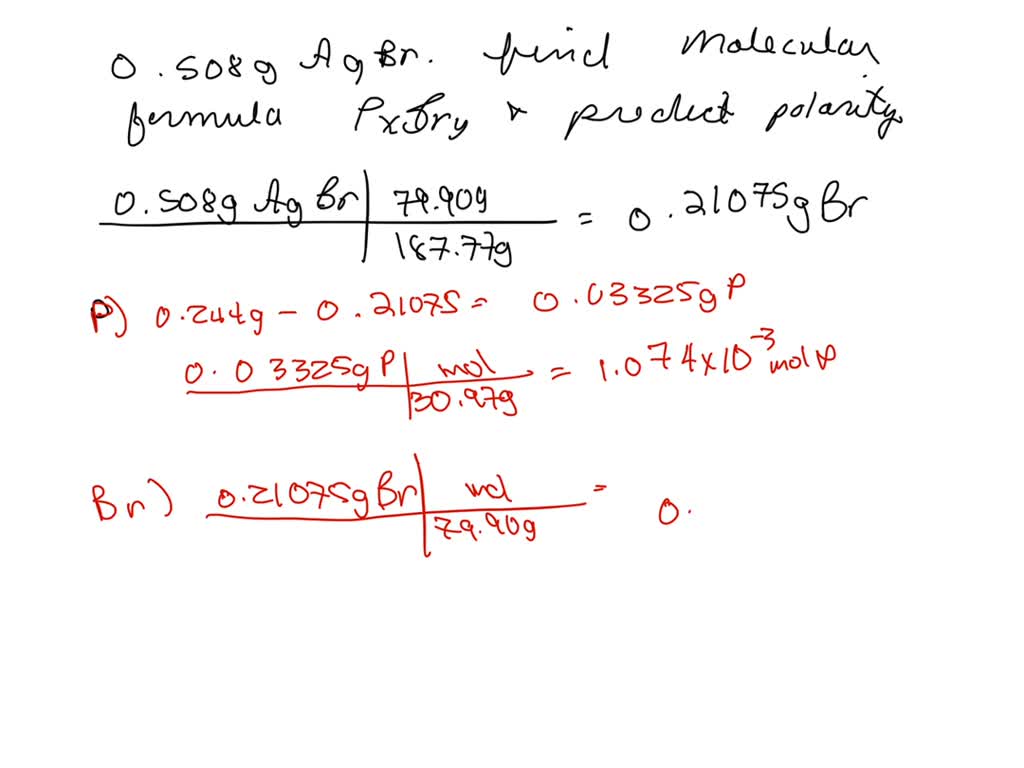 0.508g AgBr. find molecular
formula PxBry & predict polarity.
0.508g AgBr | 79.90g = 0.21075g Br
187.77g
P) 0.244g - 0.21075 = 0.03325g P
0.03325g P | mol = 1.074x10-3 mol P
30.97g
Br) 0.21075g Br | mol =
0.
79.90g